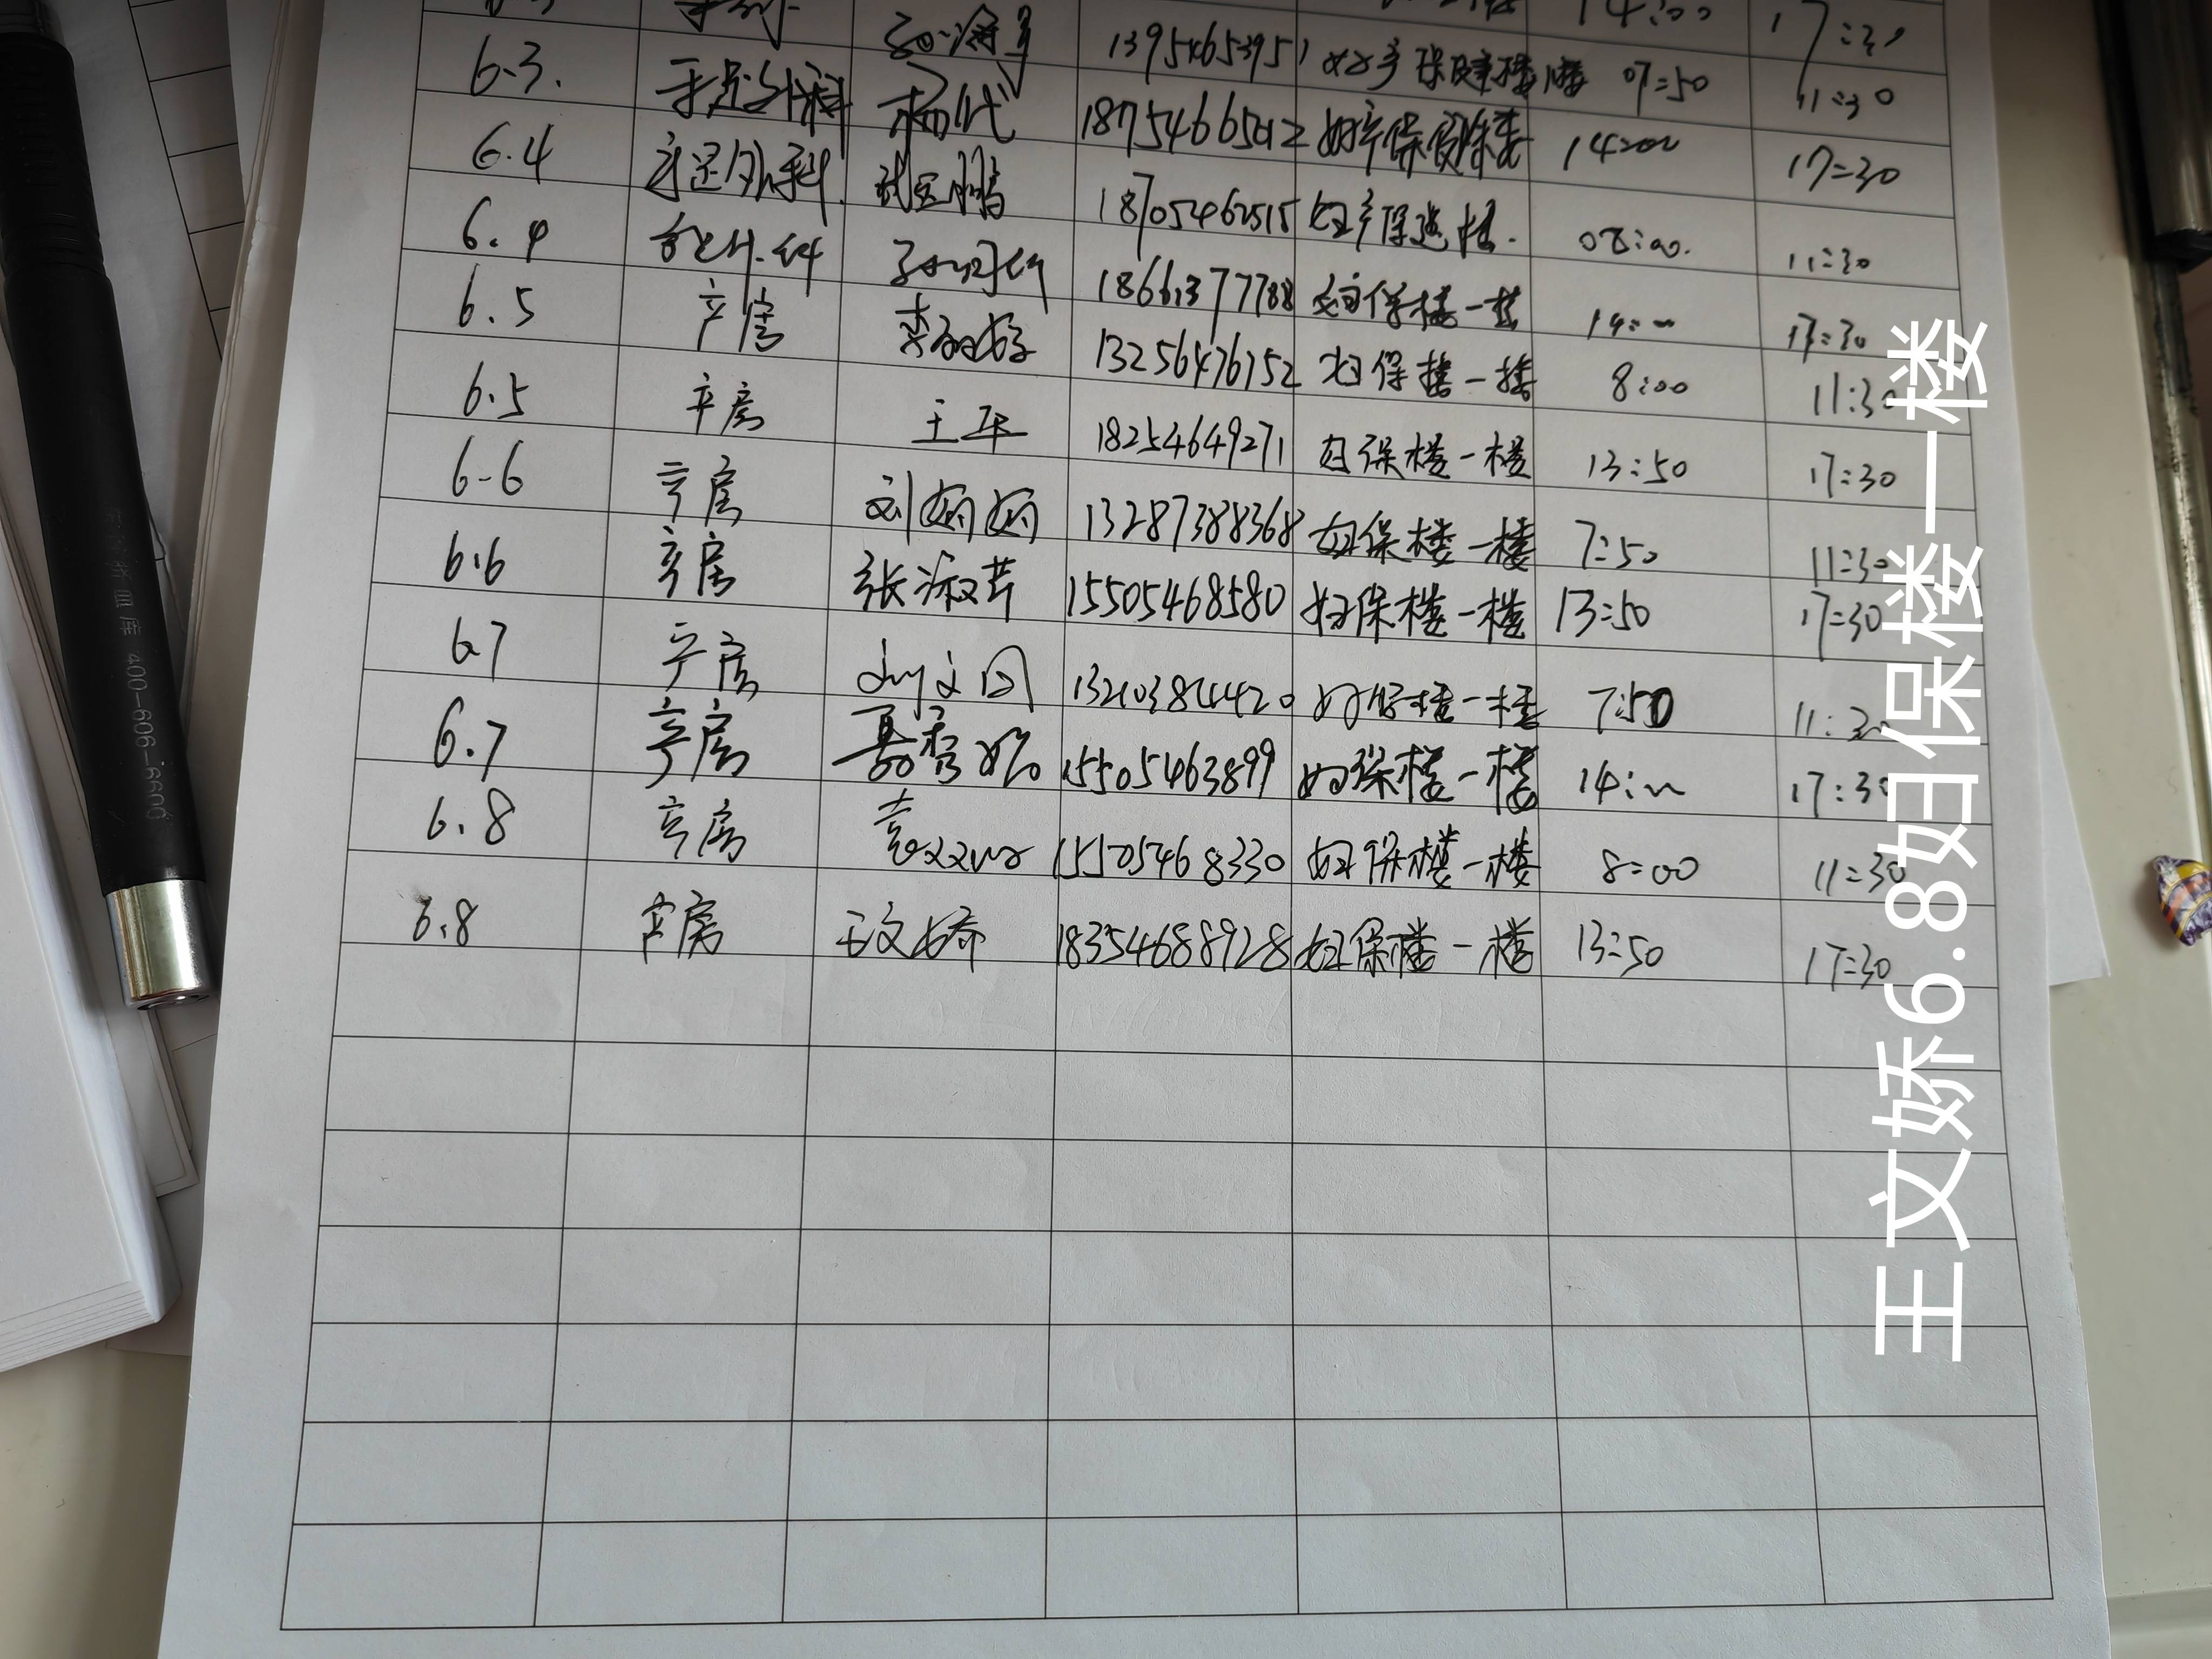 14:00 17:30
6.3. 手足外科 13954653951 妇产保健楼1楼 07:50 11:30
6.4 手足外科 杨代 18754665012 妇产保健楼 14:00 17:30
6.4 18705462515 妇产保健楼. 08:00. 11:30
6.5 产房 18661377788 妇保楼一楼 14:00 17:30
6.5 产房 王平 13256476752 妇保楼一楼 8:00 11:30
6-6 产房 刘娟娟 18254649271 妇保楼一楼 13:50 17:30
6.6 产房 张淑芹 13287388368 妇保楼一楼 7:50 11:30
6.7 产房 15505468580 妇保楼一楼 13:50 17:30
6.7 产房 13210384420 妇保楼一楼 7:50 11:30
6.8 产房 15505463899 妇保楼一楼 14:00 17:30
15505468330 妇保楼一楼 8:00 11:30
6.8 产房 王文娇 18354688928 妇保楼一楼 13:50 17:30
王文娇6.8妇保楼一楼
400-606-6600